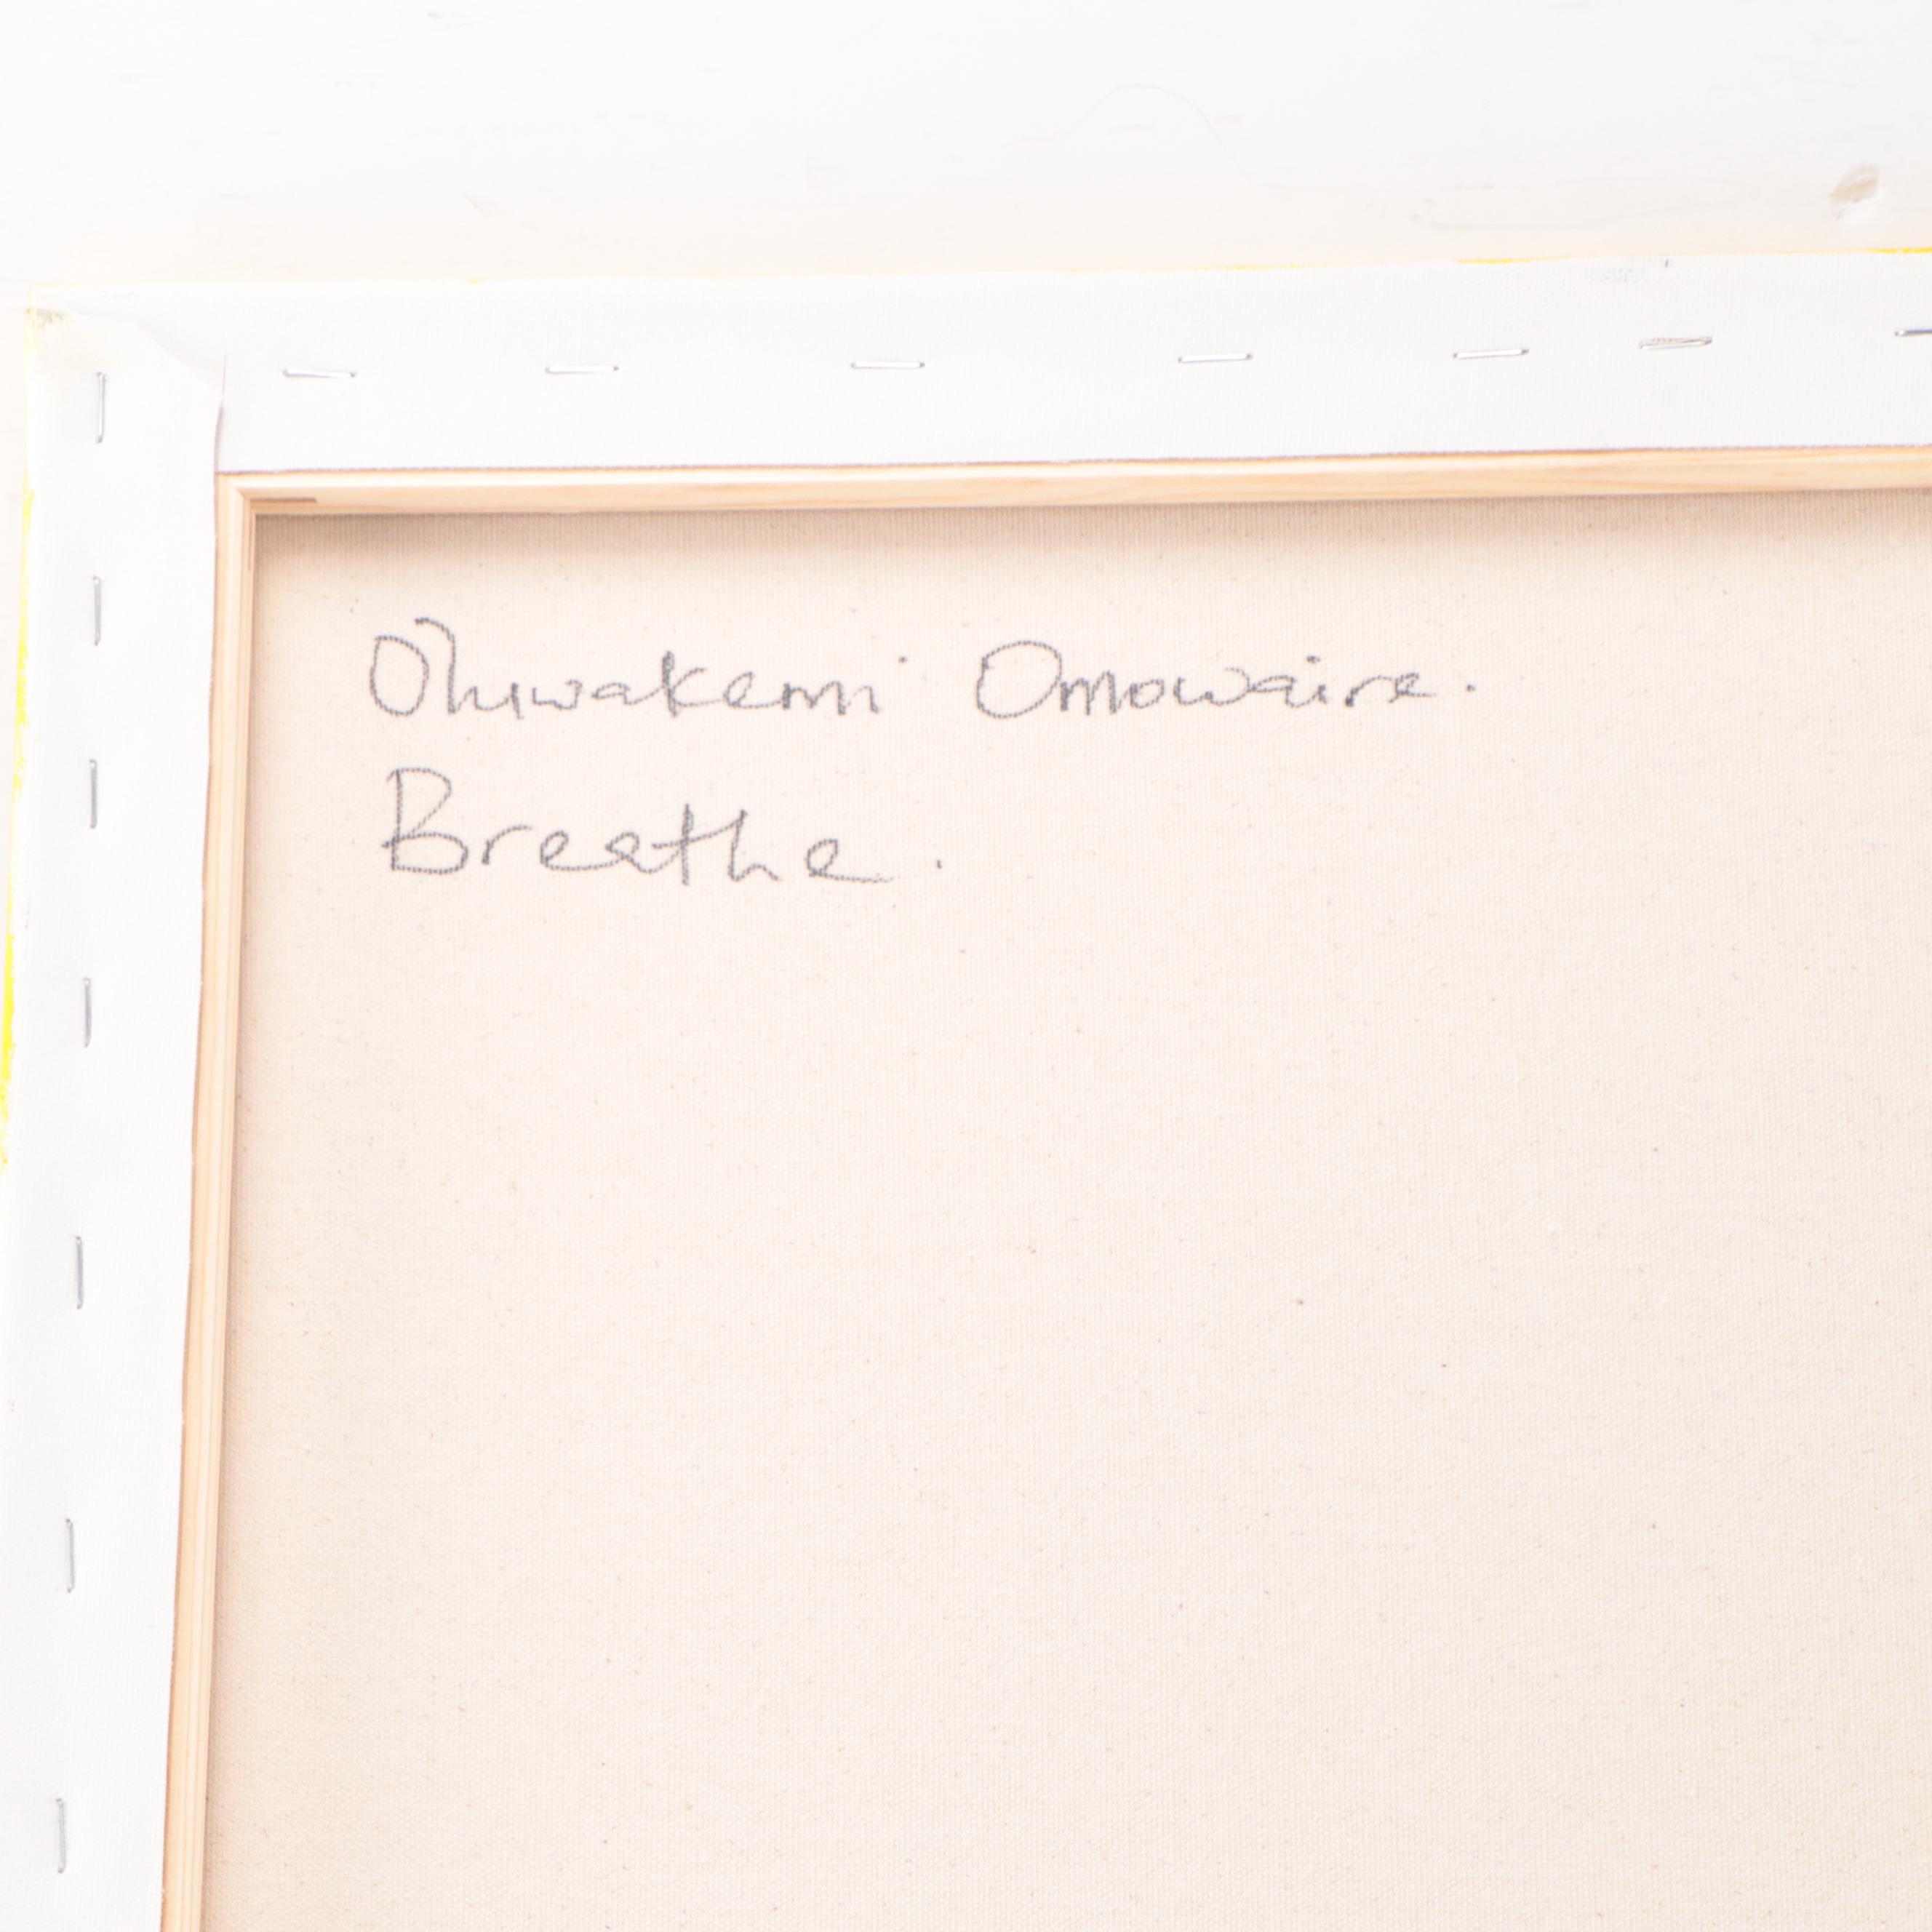 Oluwakemi Omowaire.
Breathe.